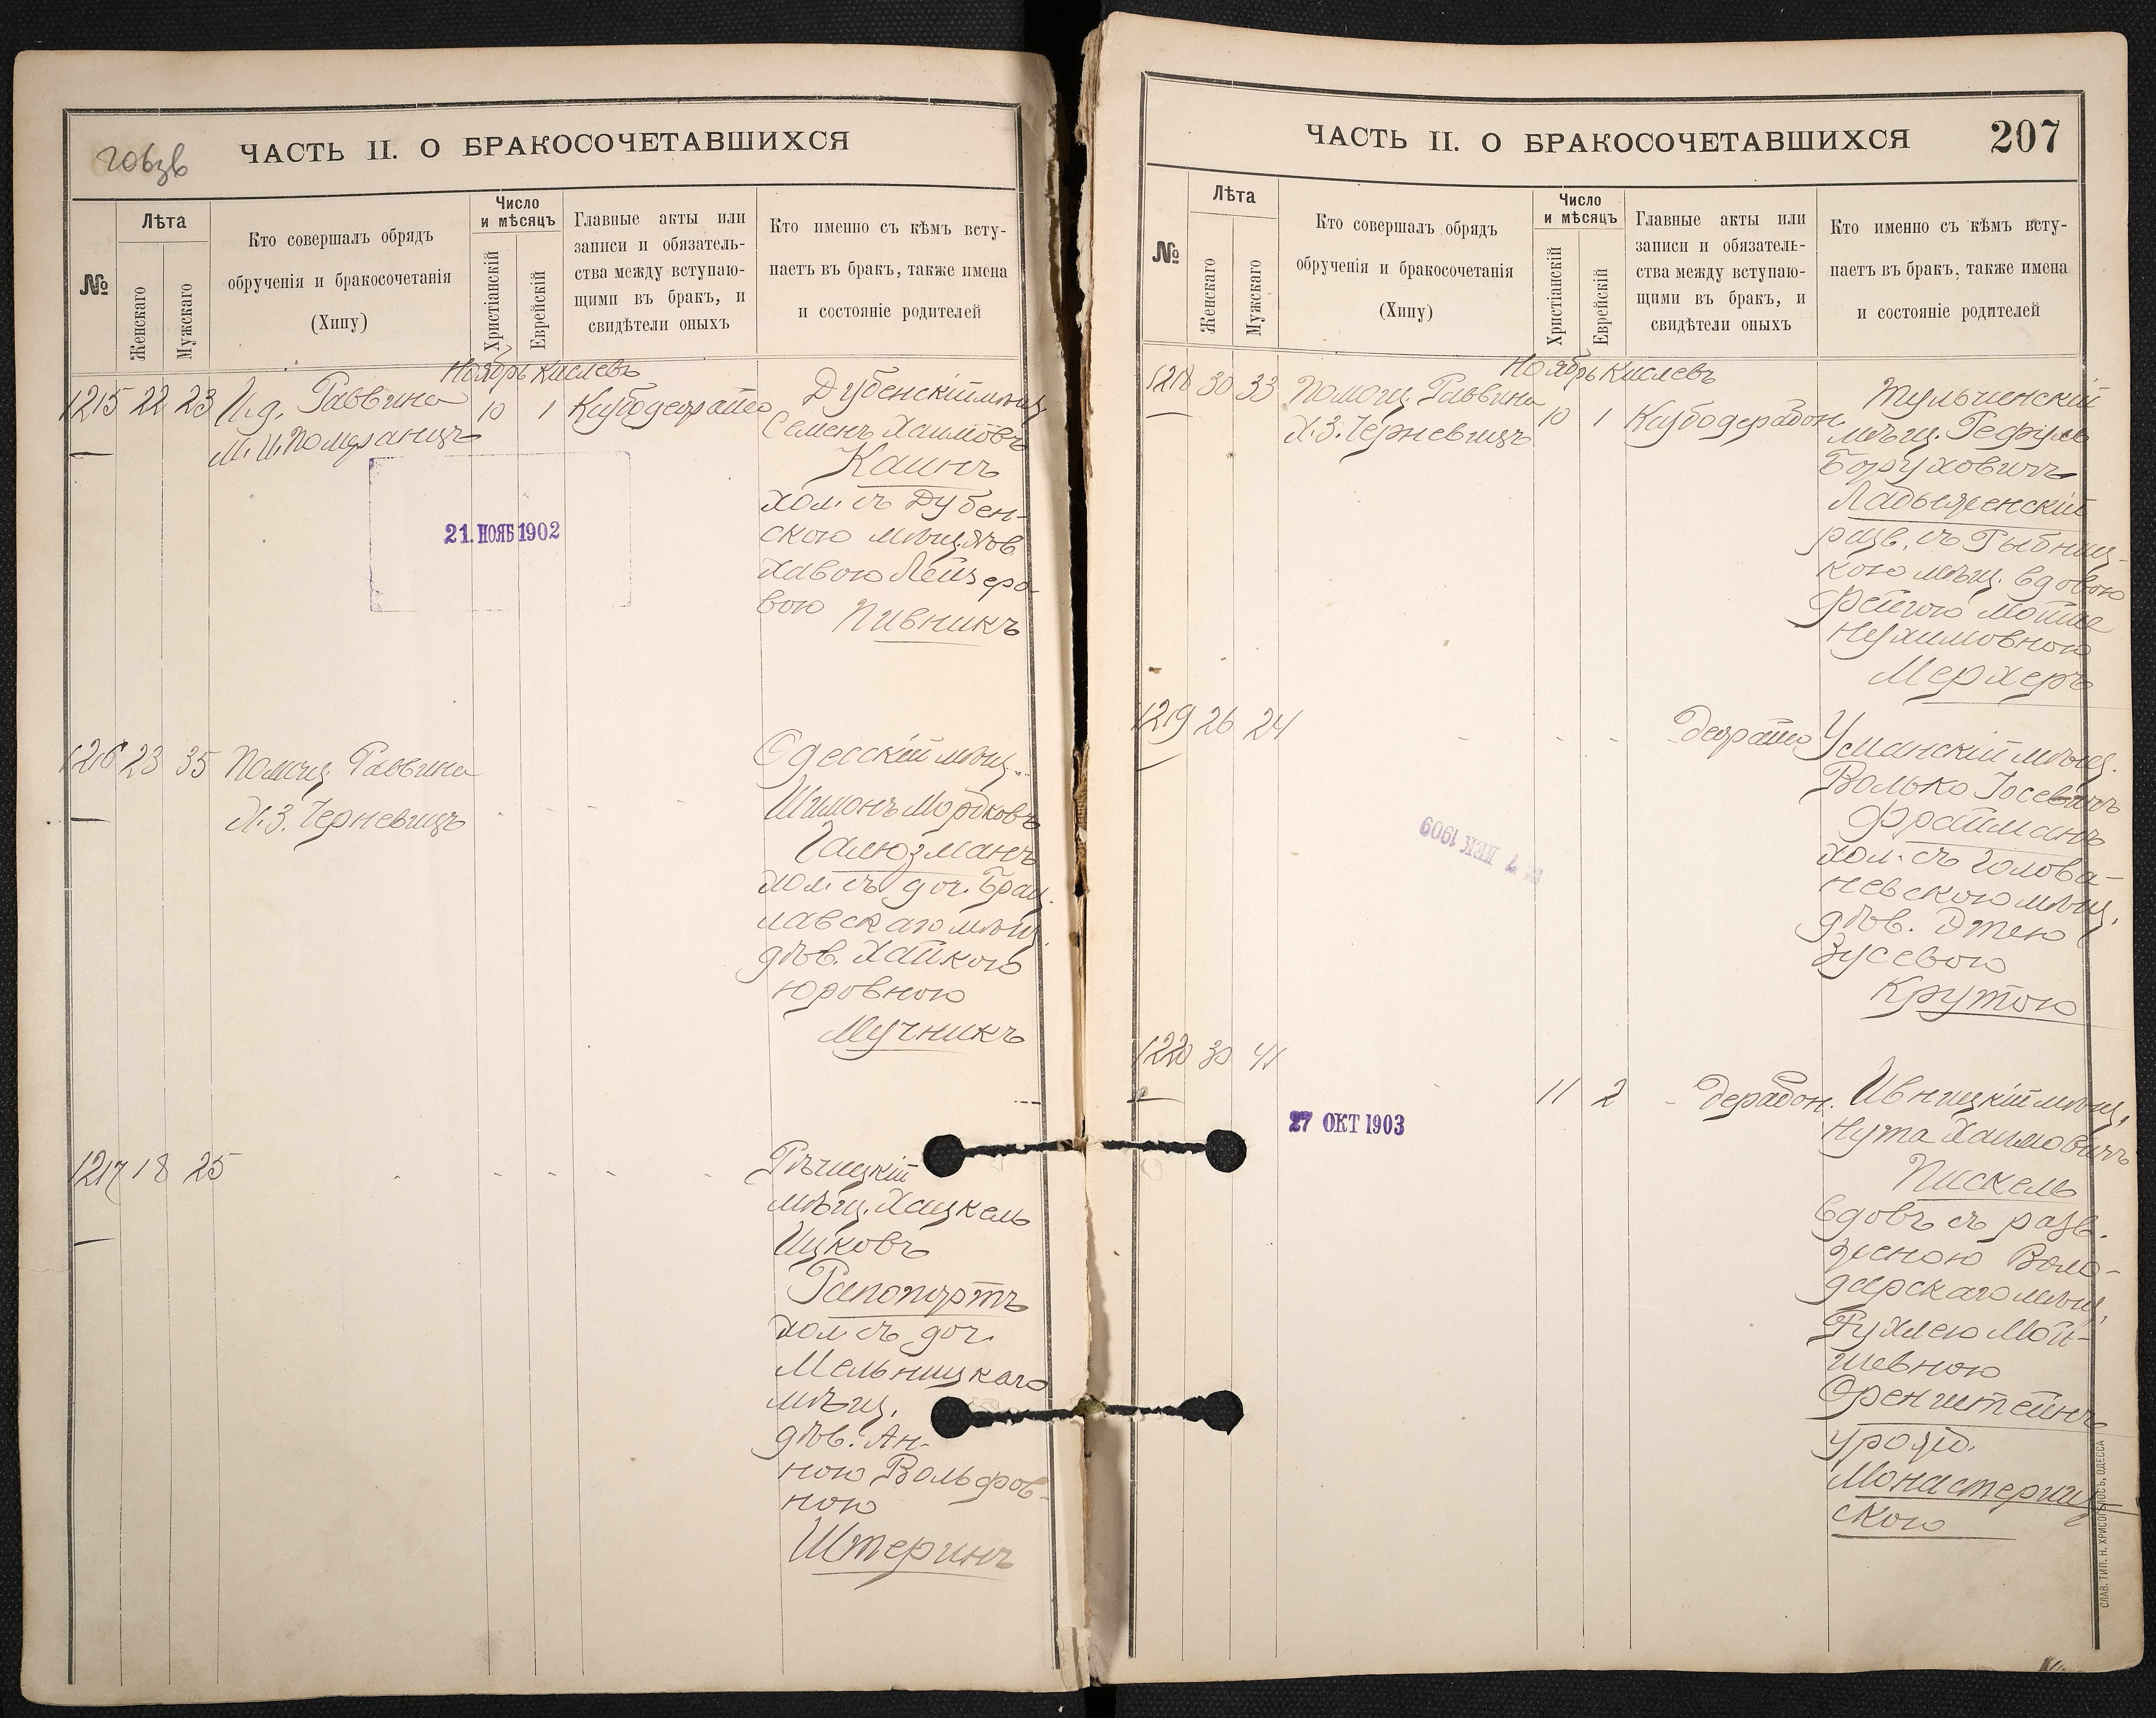 206зв
ЧАСТЬ II. О БРАКОСОЧЕТАВШИХСЯ
№
Лѣта
Женскаго
Мужскаго
Кто совершалъ обрядъ
обрученія и бракосочетанія
(Хипу)
Число
и мѣсяцъ
Христіанскій
Еврейскій
Главные акты или
записи и обязатель-
ства между вступаю-
щими въ бракъ, и
свидѣтели оныхъ
Кто именно съ кѣмъ всту-
паетъ въ бракъ, также имена
и состояніе родителей
Ноябрь Кислевъ
1215 22 23 И.д. Раввина 10 1
М. И. Померанцъ
Дубенскій мѣщ.
Семенъ Хаимовъ
Каинъ
хол. съ Дубен-
скою мѣщ. дѣв.
Хавою Лейзеро-
вою Пивникъ
21. НОЯБ 1902
1216 23 35 Помощ. Раввина
Х.З. Черневицъ
Одесскій мѣщ.
Шимонъ Мордковъ
Галюзманъ
хол. съ доч. Брац-
лавскаго мѣщ.
дѣв. Хайкою
Юровною
Мучникъ
1217 18 25
Рѣчицкій
мѣщ. Хацкель
Ицковъ
Рапопортъ
хол. съ доч.
Мельницкаго
мѣщ.
дѣв. Ан-
ною Вольфов-
ною
Штеринъ
ЧАСТЬ II. О БРАКОСОЧЕТАВШИХСЯ 207
№
Лѣта
Женскаго
Мужскаго
Кто совершалъ обрядъ
обрученія и бракосочетанія
(Хипу)
Число
и мѣсяцъ
Христіанскій
Еврейскій
Главные акты или
записи и обязатель-
ства между вступаю-
щими въ бракъ, и
свидѣтели оныхъ
Кто именно съ кѣмъ всту-
паетъ въ бракъ, также имена
и состояніе родителей
Ноябрь Кислевъ
1218 30 33 Помощ. Раввина 10 1 Кубодерабон.
Х.З. Черневицъ
Тульчинскій
мѣщ. Рефуль
Боруховичъ
Ладыженскій
разв. съ Рыбниц-
кою мѣщ. вдовою
Фейгою Мошко
Нухимовною
Мерхеръ
1219 26 24
Уманскій мѣщ.
Волько Іосевичъ
Фрайманъ
хол. съ Голова-
невскою мѣщ.
дѣв. Этею
Зусевою
Крутою
7 ДЕК 1909
1220 30 41 11 2 Дерабон.
Ивницкій мѣщ.
Нута Хаимовичъ
Пискель
вдовъ съ разв.
женою Воло-
дарскаго мѣщ.
Рухлею Мой-
шевною
Оренштейнъ
урожд.
Монастерищ-
скою
27 ОКТ 1903
СЛАВ. ТИП. Н. ХРИСОГЕЛОСЪ, ОДЕССА